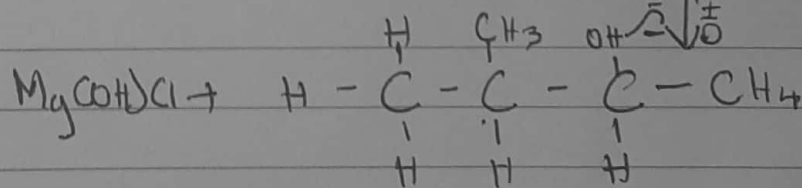 H CH3 OH
Mg(OH)Cl + H - C - C - C - CH4
H H H